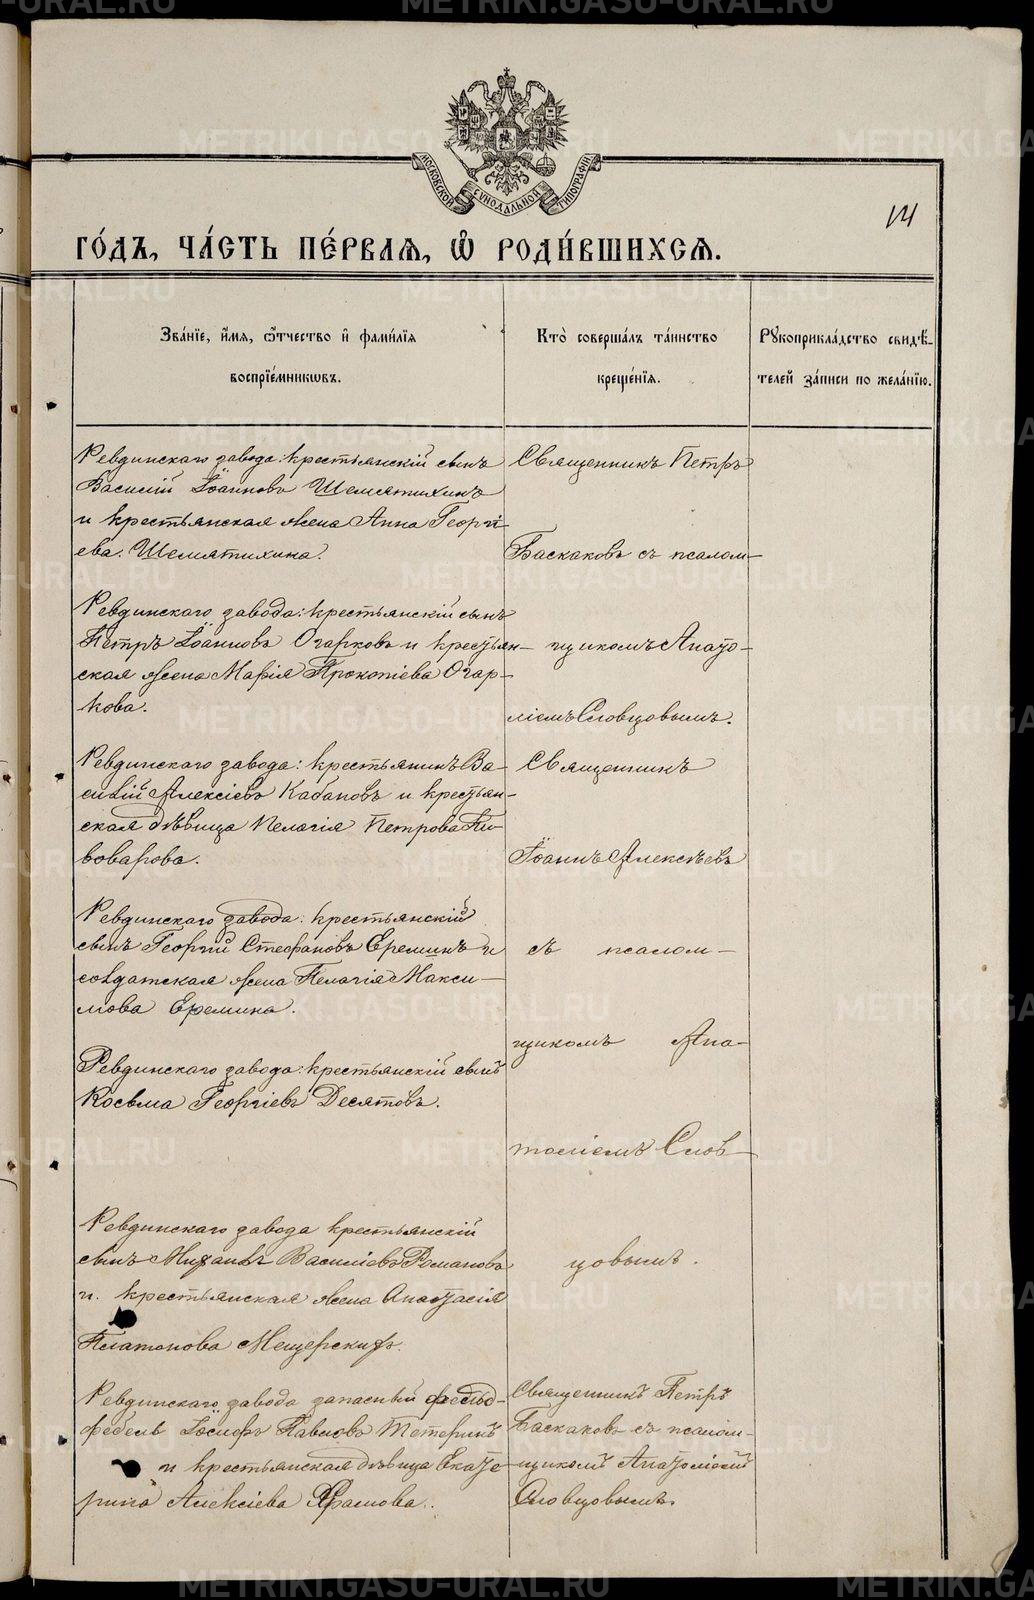 МОСКОВСКОЙ СѴНОДАЛЬНОЙ ТИПОГРАФІИ
141
ГО́ДЪ, ЧА́СТЬ ПЕ́РВАѦ, Ѽ РОДИ́ВШИХСѦ.
Зва́нїе, и҆́мѧ, ѻ҆́тчество и҆ фами́лїѧ
воспрїе́мникѡвъ.
Кто̀ соверша́лъ та́инство
креще́нїѧ.
Рꙋкоприкла́дство свидѣ́-
телей за́писи по жела́нїю.
Ревдинскаго завода: крестьянскій сынъ
Василій Іоанновъ Шемятихинъ
и крестьянская жена Анна Георгі-
ева Шемятихина.
Священникъ Петръ
Баскаковъ съ псалом-
Ревдинскаго завода: крестьянскій сынъ
Петръ Іоанновъ Огарковъ и крестьян-
ская жена Марія Прокопіева Огар-
кова.
щикомъ Анато-
ліемъ Словцовымъ.
Ревдинскаго завода: крестьянинъ Ва-
силій Алексіевъ Кабановъ и крестьян-
ская дѣвица Пелагія Петрова Пи-
воварова.
Священникъ
Іоаннъ Алексѣевъ
Ревдинскаго завода: крестьянскій
сынъ Георгій Стефановъ Ереминъ и
солдатская жена Пелагія Макси-
мова Еремина.
съ псалом-
щикомъ Ана-
Ревдинскаго завода: крестьянскій сынъ
Косьма Георгіевъ Десятовъ.
толіемъ Слов-
Ревдинскаго завода крестьянскій
сынъ Михаилъ Василіевъ Романовъ
и крестьянская жена Анастасія
Платонова Мещерскихъ.
цовымъ.
Ревдинскаго завода запасный фельд-
фебель Іосифъ Павловъ Тетеринъ
и крестьянская дѣвица Екате-
рина Алексіева
Священникъ Петръ
Баскаковъ съ псалом-
щикомъ Анатоліемъ
Словцовымъ.
METRIKI.GASO-URAL.RU